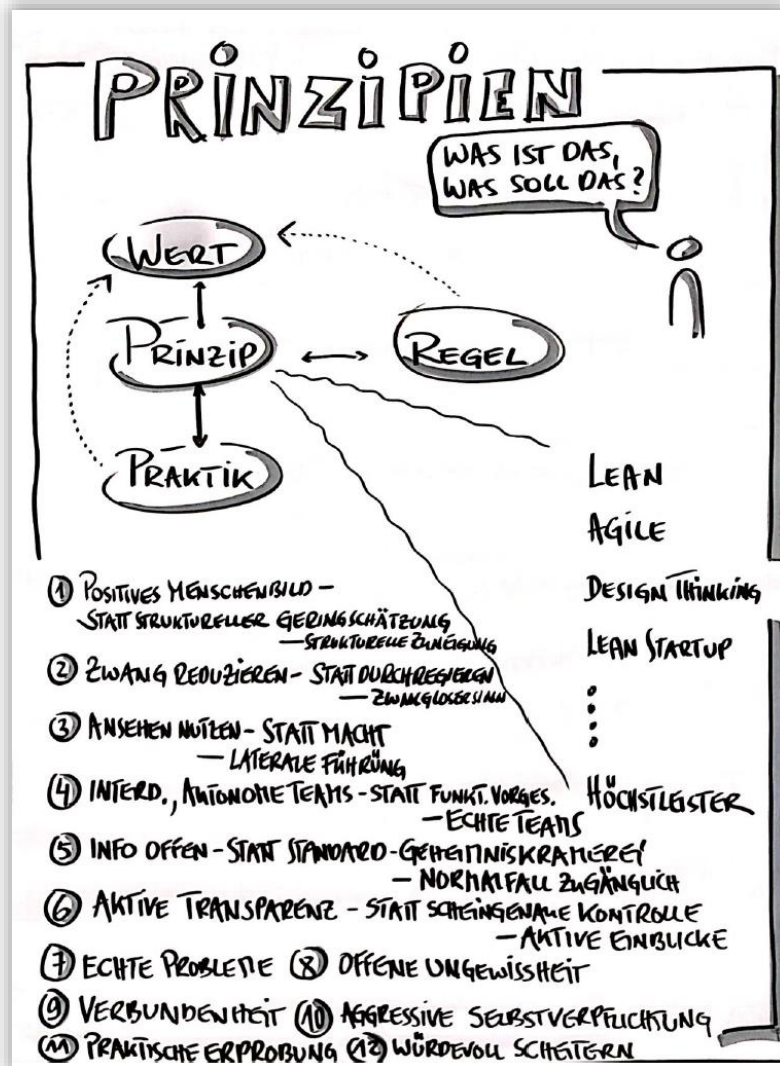 PRINZIPIEN
WAS IST DAS,
WAS SOLL DAS?
WERT
PRINZIP
REGEL
PRAKTIK
LEAN
AGILE
DESIGN THINKING
LEAN STARTUP
HÖCHSTLEISTER
① POSITIVES MENSCHENBILD –
STATT STRUKTURELLER GERINGSCHÄTZUNG
— STRUKTURELLE ZUNEIGUNG
② ZWANG REDUZIEREN – STATT DURCHREGIEREN
— ZWANGLOSER SINN
③ ANSEHEN NUTZEN – STATT MACHT
— LATERALE FÜHRUNG
④ INTERD., AUTONOME TEAMS – STATT FUNKT. VORGES.
— ECHTE TEAMS
⑤ INFO OFFEN – STATT STANDARD-GEHEIMNISKRAMEREI
— NORMALFALL ZUGÄNGLICH
⑥ AKTIVE TRANSPARENZ – STATT SCHEINGENAUE KONTROLLE
— AKTIVE EINBLICKE
⑦ ECHTE PROBLEME ⑧ OFFENE UNGEWISSHEIT
⑨ VERBUNDENHEIT ⑩ AGGRESSIVE SELBSTVERPFLICHTUNG
⑪ PRAKTISCHE ERPROBUNG ⑫ WÜRDEVOLL SCHEITERN